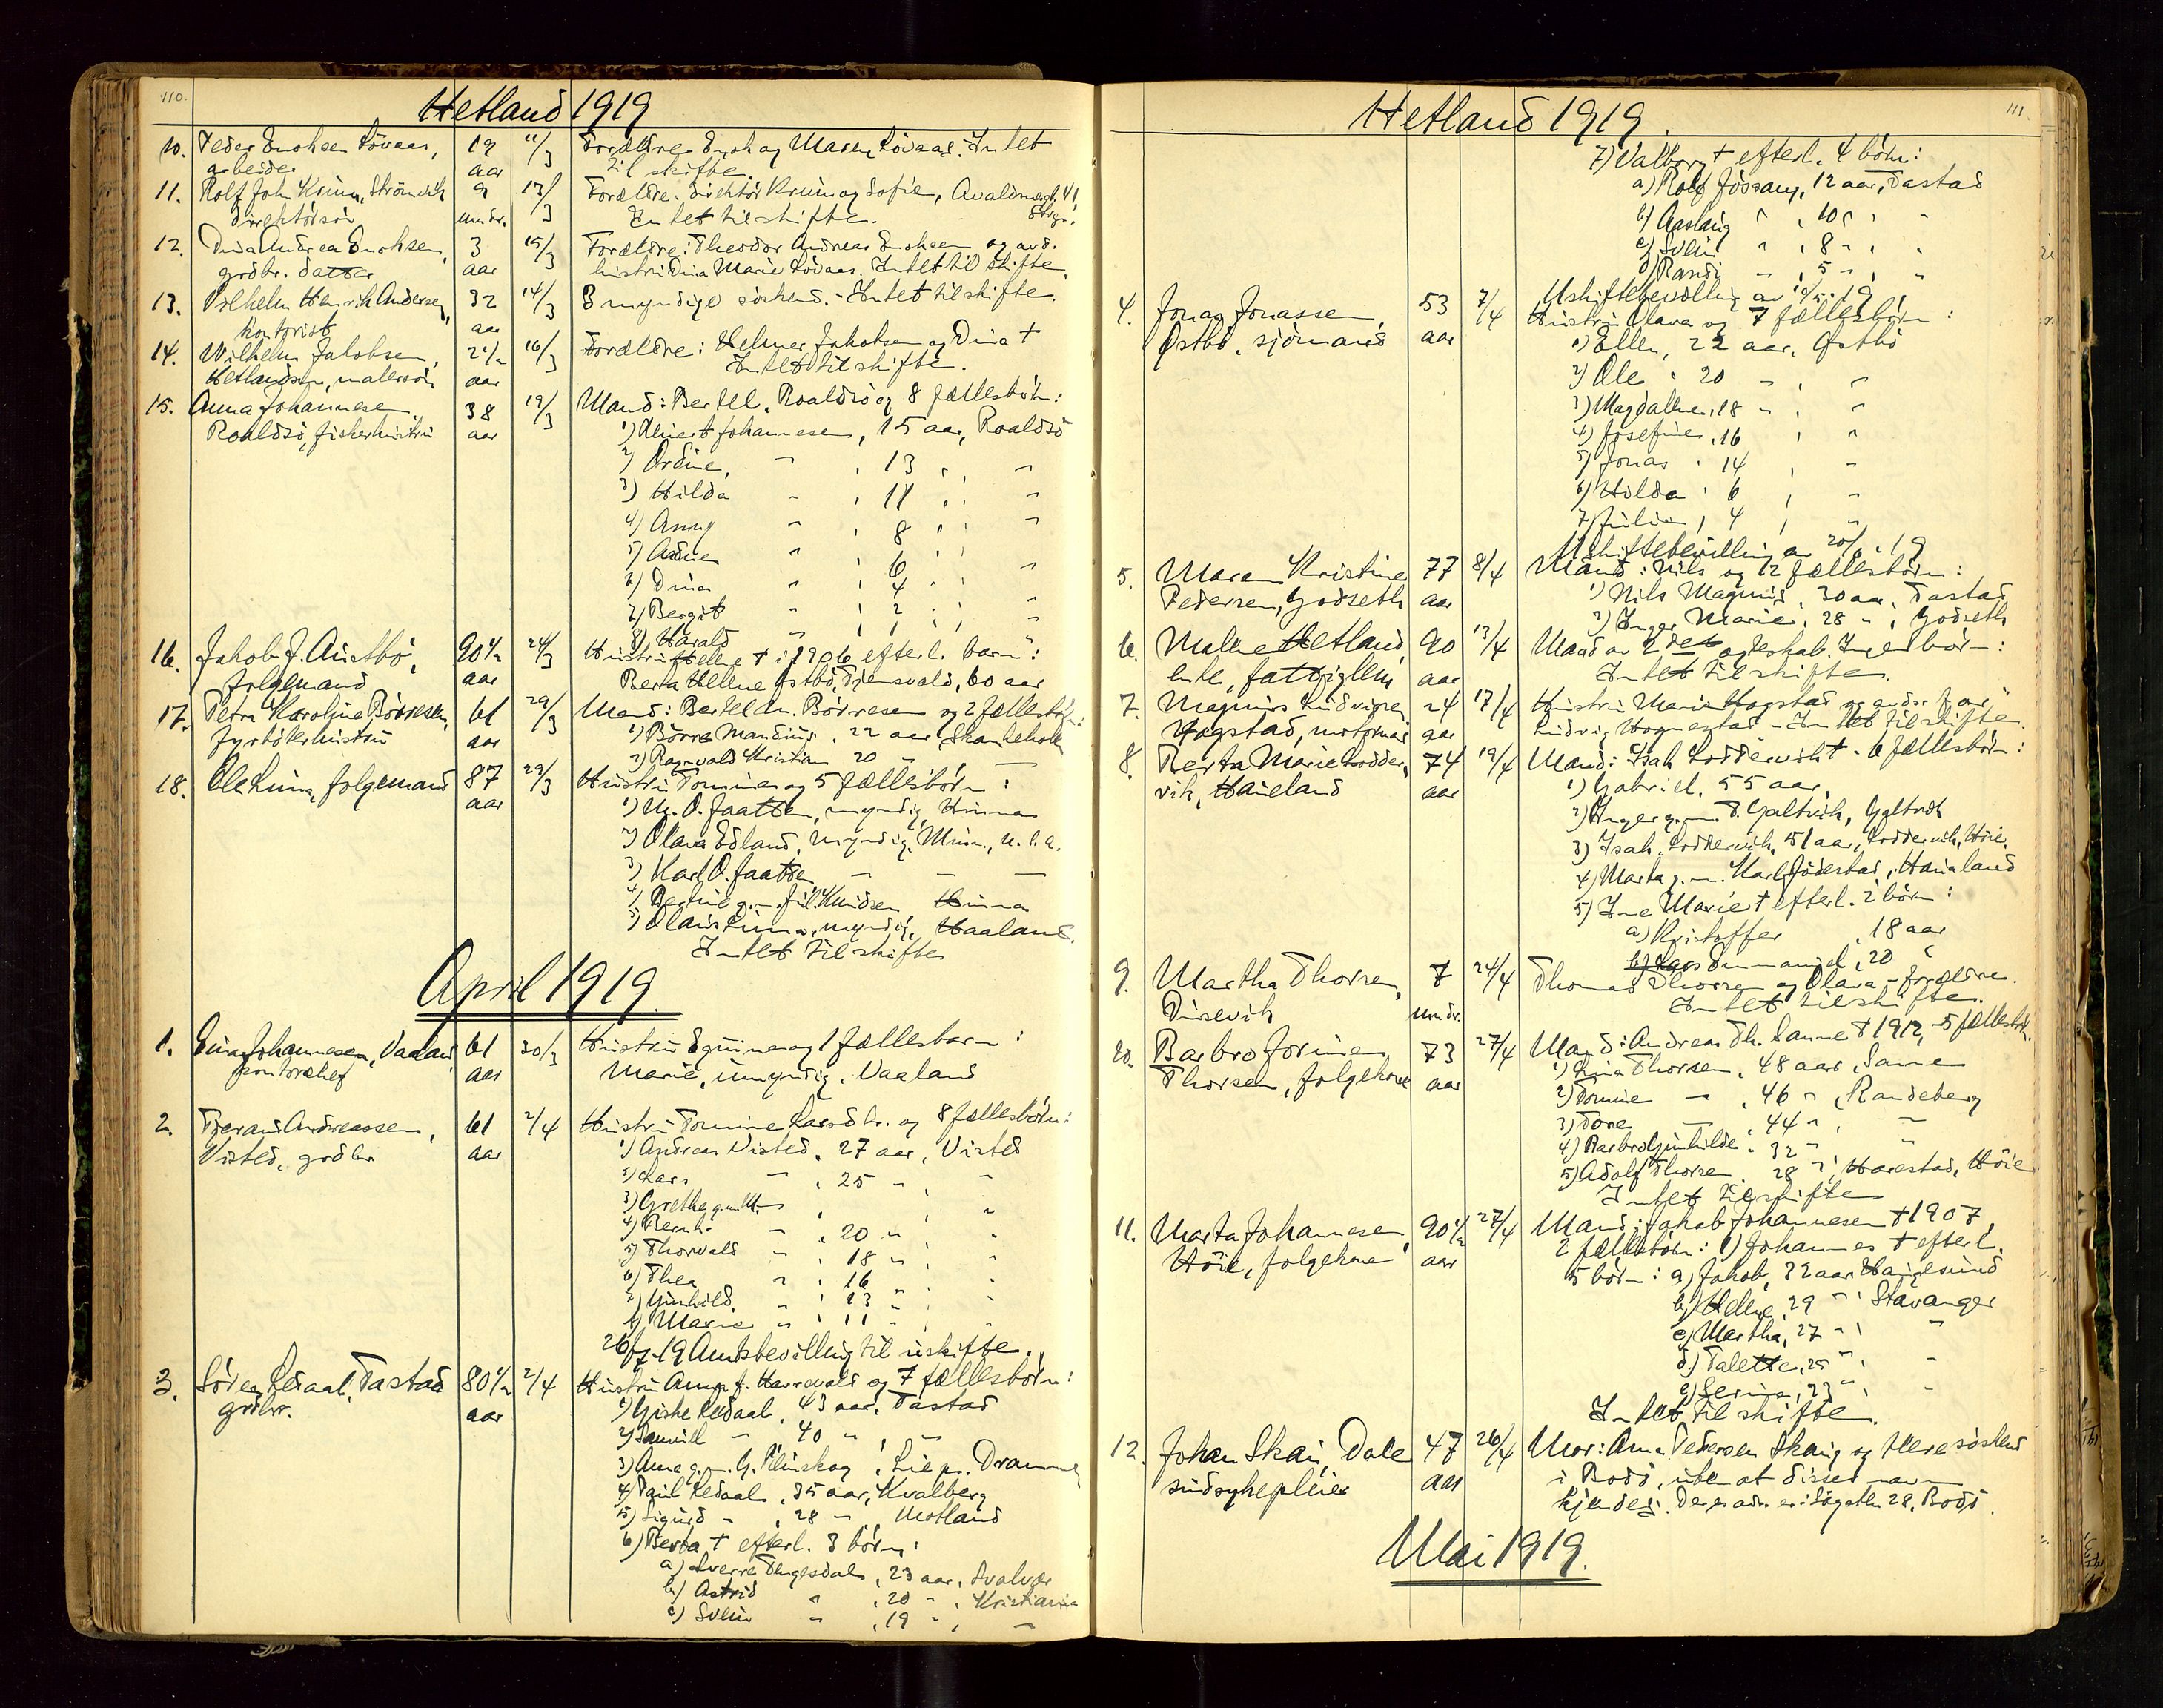 110.
Hetland 1919
10. Peder Enoksen Lövaas, 19 11/3 Forældre: Enok og Maren Lövaas. Intet
arbeider aar til skifte.
11. Rolf John Krüm, Strömvik 9 13/3 Forældre: direktör Krüm og Sofie, Avaldsnesgt. 41,
direktörsön mndr. Intet til skifte. Stvgr.
12. Dina Andrea Enoksen, 3 15/3 Forældre: Theodor Andreas Enoksen og avd.
grdbr. datter aar hustru Dina Marie Lövaas. Intet til skifte.
13. Vilhelm Henrik Andersen, 32 14/3 3 myndige söskend. - Intet til skifte.
kontorist aar
14. Wilhelm Jakobsen, 2 1/2 16/3 Forældre: Helmer Jakobsen og Dina †
Hetlandsgn, malersön aar Intet til skifte.
15. Anna Johannesen, 38 19/3 Mand: Bertel, Roaldsö og 8 fællesbörn:
Roaldsö, fiskerhustru aar 1) Johannesen, 15 aar, Roaldsö
2) Ordine, " , 13 , "
3) Hilda " , 11 , "
4) Anny " , 8 , "
5) " , 6 , "
6) Dina " , 4 , "
7) Bergit " , 2 , "
8) Harald " , 1 , "
16. Jakob J. Austbö, 90 1/2 24/3 Hustru Hellene † i 1906 efterl. barn:
folgemand aar Berta Hellene Østbö, Tjensvold, 60 aar
17. Petra Karoline Börresen, 61 29/3 Mand: Bertel M. Börresen og 2 fællesbörn:
fyrböterhustru aar 1) Börre Mandius, 22 aar,
2) Ragnvald Kristian 20 " , "
18. Ole Luna, folgemand 87 29/3 Hustru Tomine og 5 fællesbörn:
aar 1) M. O. Jaatten, myndig, Hinna
2) Olava Edland, myndig, Minn., U.S.A.
3) Karl O. Jaatten " " "
4) Bertine g.m. Jul. Knudsen Hinna
5) Olaus Luna, myndig, Haaland.
Intet til skifte
April 1919.
1. Einar Johannesen, Vaaland 61 30/3 Hustru Eguine og 1 fællesbarn:
kontorchef aar Marie, umyndig, Vaaland
2. Tjerand Andreassen, 61 2/4 Hustru Tomine Larsdtr. og 8 fællesbörn:
Visted, grdbr aar 1) Andreas Visted, 27 aar, Visted
2) Lars " , 25 " , "
3) Grethe g.m. "
4) Bernh. " , 20 " , "
5) Thorvald " , 18 " , "
6) Thea " , 16 , "
7) Gunhild, " , 13 " , "
8) Marie " , 11 " , "
26/7-19 Amtsbevilling til uskifte.
3. Sören Ledaal, Tastad 80 1/2 2/4 Hustru Anna f. Harevald og 7 fællesbörn:
grdbr. aar 1) Giske Ledaal, 43 aar, Tastad
2) Samuel " 40 " , "
3) Anne g.m. G. , Lie pr. Drammen
4) Paul Ledaal, 35 aar, Kvalberg
5) Sigurd " , 28 " , Motland
6) Berta † efterl. 3 börn:
a) Sverre Tengesdal, 23 aar, Svolvær
b) Astrid " , 20 " , Kristiania
c) Svein " , 19 " , "
111.
Hetland 1919.
7) Valborg † efterl. 4 börn:
a) Rolf Jössang, 12 aar, Tastad
b) Aaslaug " , 10 " , "
c) Svein " , 8 " , "
d) Randi " , 5 " , "
Uskiftebevilling av 10/5-19
4. Jonas Jonassen, 53 7/4 Hustru Olava og 7 fællesbörn:
Østbö, sjömand aar 1) Ellen, 22 aar, Østbö
2) Ole , 20 " , "
3) Magdalene, 18 " , "
4) Josefine, 16 , "
5) Jonas , 14 , "
6) Hilda , 6 , "
7) Julie , 4 , "
Uskiftebevilling av 20/6-19
5. Maren Kristine 77 8/4 Mand: Nils og 12 fællesbörn:
Pedersen, Godseth aar 1) Nils Magnus, 30 aar, Tastad
2) Inger Marie, 28 " , Godseth
6. Malene Hetland, 90 13/4 Mand av 2det egteskab. Ingen börn:
enke, fattiglem aar Intet til skifte.
7. Magnus Ludvigsen 24 17/4 Hustru Marie Hogstad og avdödes far
Hogstad, motormand aar Ludvig Hognestad - Intet til skifte.
8. Berta Marie Lodder- 74 19/4 Mand: Isak Loddervik † - 6 fællesbörn:
vik, Haueland aar 1) Gabriel, 55 aar,
2) Inger g.m. T. Galtvik, Galtvik
3) Isak Loddervik, 51 aar, Loddervik, Höie.
4) Marta g.m. Karl Jödestad, Haualand
5) Ine Marie † efterl. 2 börn:
a) Kristoffer , 18 aar
b) , 20 "
9. Martha Thorsen, 7 24/4 Thomas Thorsen og Olava - forældre.
Dusevik mndr. Intet til skifte.
10. Barbro Jorine 73 27/4 Mand: Andreas Th. Sanne † 1912, - 5 fællesbörn.
Thorsen, folgekone aar 1) Lina Thorsen, 48 aar, Sanne
2) Tomine " , 46 " , Randeberg
3) Tore " , 44 " , "
4) Barbro Gunhilde , 32 " "
5) Adolf Thorsen , 28 " , Harestad, Höie
Intet til skifte
11. Marta Johannesen 90 1/2 27/4 Mand: Jakob Johannesen † 1907,
Höie, folgekone aar 2 fællesbörn: 1) Johannes † efterl.
5 börn: a) Jakob, 32 aar Haugesund
b) Hellene, 29 " , Stavanger
c) Martha, 27 " , "
d) Talette, 25 " , "
e) Serine, 23 " , "
Intet til skifte.
12. Johan Skau, Dale 47 26/4 Mor: Anna Pedersen Skaug og flere söskend
sindsykepleier aar i Bodö, uten at disses navn
kjendes. Deres adr. er: Sögaten 28, Bodö.
Mai 1919.